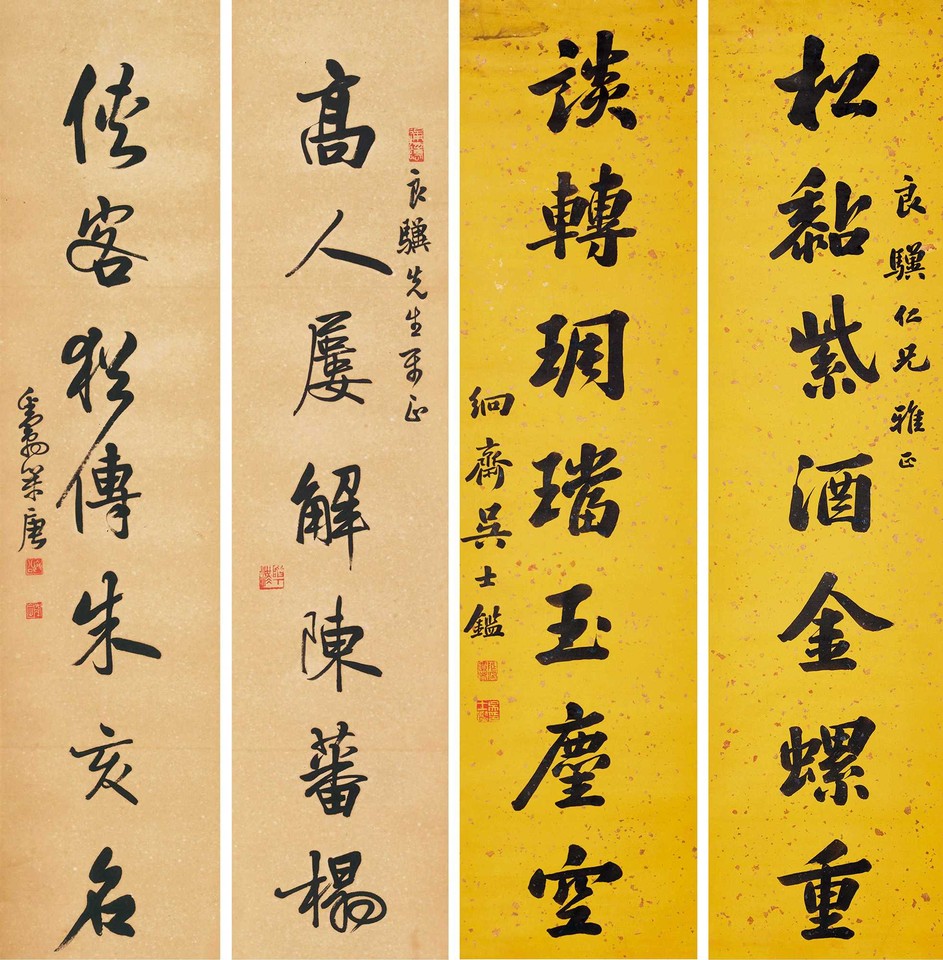 良驥仁兄雅正
松黏紫酒金螺重
談轉琱璫玉麈空
絅齋吳士鑑
良驥先生正
高人屢解陳蕃榻
俠客猶傳朱亥名